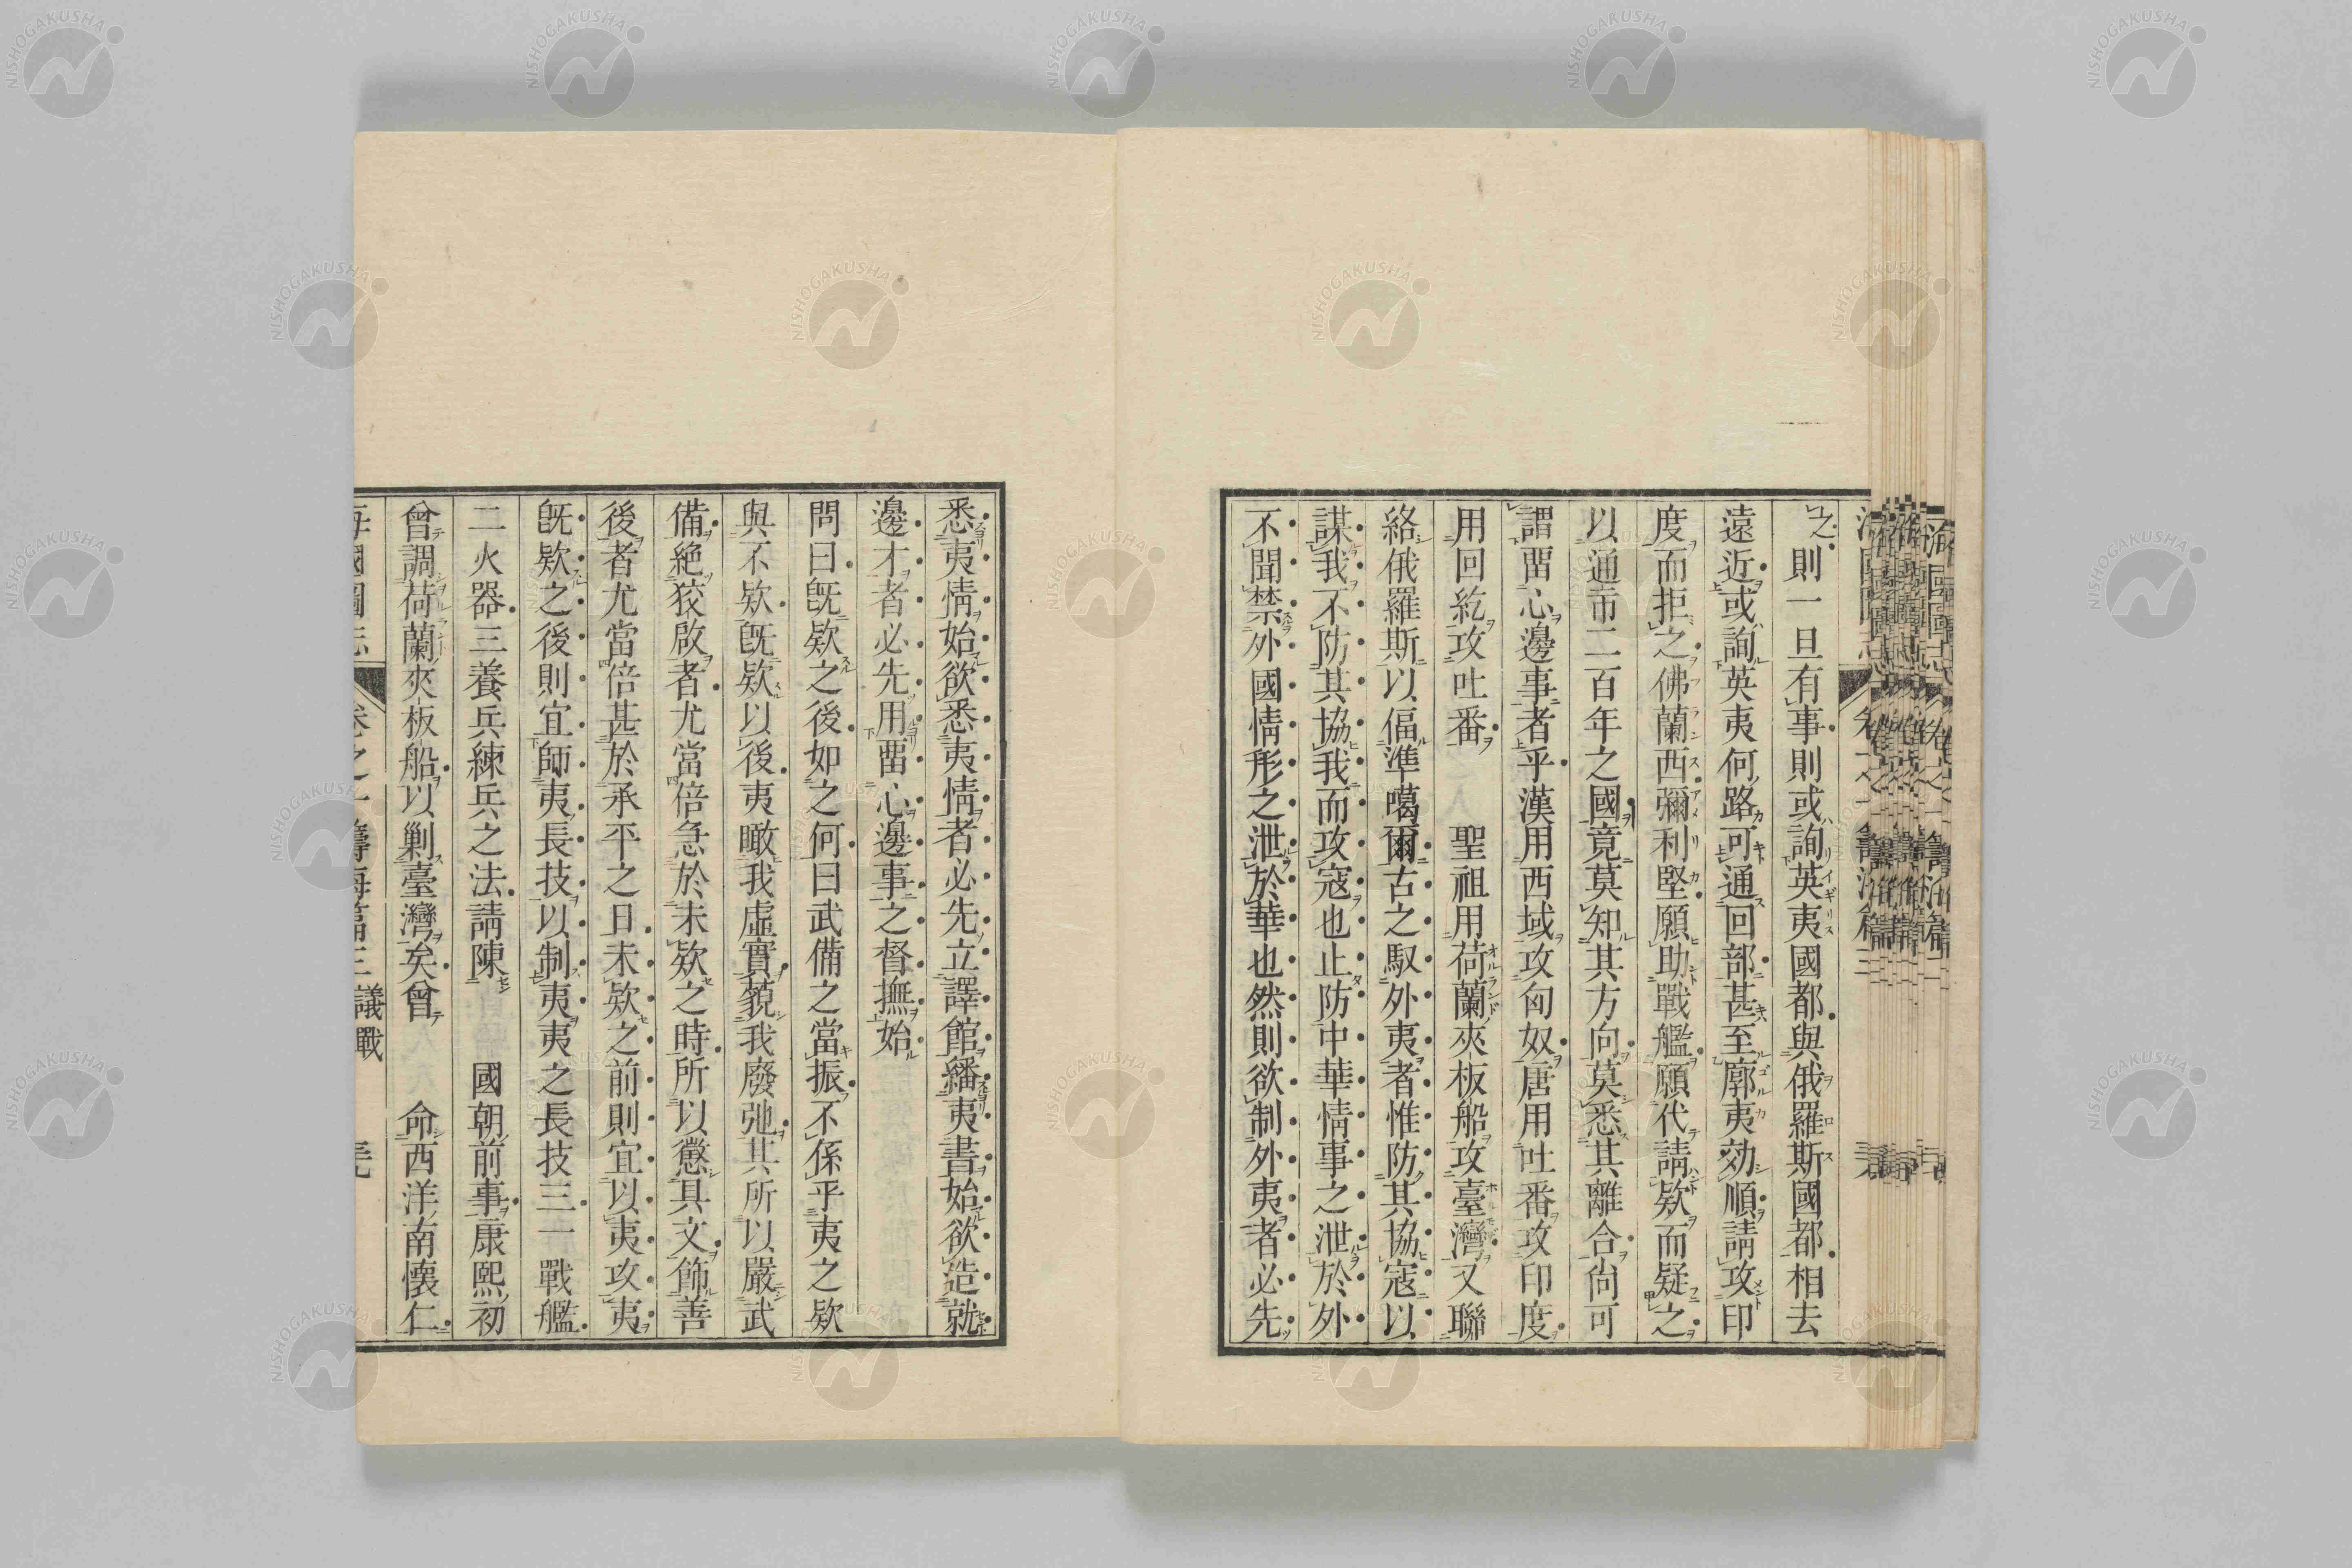 之則一旦有事則或詢英夷國都與俄羅斯國都相去
遠近或詢英夷何路可通回部甚至廓夷効順請攻印
度而拒之佛蘭西彌利堅願助戰艦願代請欵而疑之
以通市二百年之國竟莫知其方向莫悉其離合尙可
謂畱心邊事者乎漢用西域攻匈奴唐用吐番攻印度
用回紇攻吐番 聖祖用荷蘭夾板船攻臺灣又聯
絡俄羅斯以偪準噶爾古之馭外夷者惟防其協寇以
謀我不防其協我而攻寇也止防中華情事之泄於外
不聞禁外國情形之泄於華也然則欲制外夷者必先
悉夷情始欲悉夷情者必先立譯館繙夷書始欲造就
邊才者必先用畱心邊事之督撫始
問曰旣欵之後如之何曰武備之當振不係乎夷之欵
與不欵旣欵以後夷瞰我虛實藐我廢弛其所以嚴武
備絕狡啟者尤當倍急於未欵之時所以懲具文飾善
後者尤當倍甚於承平之日未欵之前則宜以夷攻夷
旣欵之後則宜師夷長技以制夷夷之長技三一戰艦
二火器三養兵練兵之法請陳 國朝前事康熙初
曾調荷蘭夾板船以剿臺灣矣曾 命西洋南懷仁
海國圖志 卷之一籌海篇三議戰
NISHOGAKUSHA